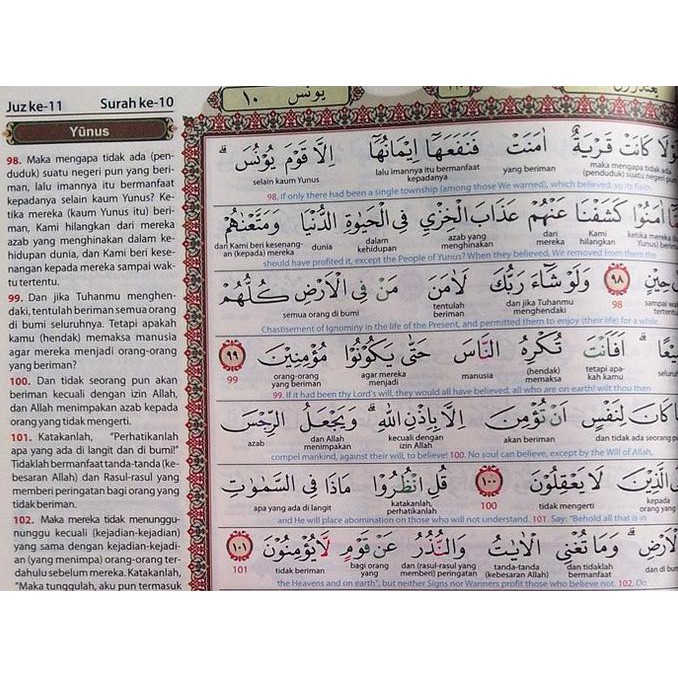 Juz ke-11 Surah ke-10
Yūnus
98. Maka mengapa tidak ada (pen-
duduk) suatu negeri pun yang beri-
man, lalu imannya itu bermanfaat
kepadanya selain kaum Yunus? Ke-
tika mereka (kaum Yunus itu) beri-
man, Kami hilangkan dari mereka
azab yang menghinakan dalam ke-
hidupan dunia, dan Kami beri kese-
nangan kepada mereka sampai wak-
tu tertentu.
99. Dan jika Tuhanmu menghen-
daki, tentulah beriman semua orang
di bumi seluruhnya. Tetapi apakah
kamu (hendak) memaksa manusia
agar mereka menjadi orang-orang
yang beriman?
100. Dan tidak seorang pun akan
beriman kecuali dengan izin Allah,
dan Allah menimpakan azab kepada
orang yang tidak mengerti.
101. Katakanlah, "Perhatikanlah
apa yang ada di langit dan di bumi!"
Tidaklah bermanfaat tanda-tanda (ke-
besaran Allah) dan Rasul-rasul yang
memberi peringatan bagi orang yang
tidak beriman.
102. Maka mereka tidak menunggu-
nunggu kecuali (kejadian-kejadian)
yang sama dengan kejadian-kejadi-
an (yang menimpa) orang-orang ter-
dahulu sebelum mereka. Katakanlah,
"Maka tunggulah, aku pun termasuk
يونس ١٠
كَانَتْ قَرْيَةٌ اٰمَنَتْ فَنَفَعَهَآ اِيْمَانُهَآ اِلَّا قَوْمَ يُوْنُسَۗ
maka mengapa tidak ada (penduduk) suatu negeri pun yang beriman lalu imannya itu bermanfaat kepadanya selain kaum Yunus
98. If only there had been a single township (among those We warned), which believed, so its Faith
اٰمَنُوْا كَشَفْنَا عَنْهُمْ عَذَابَ الْخِزْيِ فِى الْحَيٰوةِ الدُّنْيَا وَمَتَّعْنٰهُمْ
ketika mereka (kaum Yunus) beriman Kami hilangkan dari mereka azab yang menghinakan dalam kehidupan dunia dan Kami beri kesenang-an (kepada) mereka
should have profited it, except the People of Yunus? When they believed, We removed from them the
حِيْنٍ ٩٨ وَلَوْ شَاۤءَ رَبُّكَ لَاٰمَنَ مَنْ فِى الْاَرْضِ كُلُّهُمْ
sampai waktu tertentu 98 dan jika Tuhanmu menghendaki tentulah beriman semua orang di bumi
Chastisement of Ignominy in the life of the Present, and permitted them to enjoy (their life) for a while.
اَفَاَنْتَ تُكْرِهُ النَّاسَ حَتّٰى يَكُوْنُوْا مُؤْمِنِيْنَ ٩٩
tetapi apa-kah kamu (hendak) memaksa manusia agar mereka menjadi orang-orang yang beriman 99
99. If it had been thy Lord's will, they would all have believed, all who are on earth! wilt thou then
كَانَ لِنَفْسٍ اَنْ تُؤْمِنَ اِلَّا بِاِذْنِ اللّٰهِۗ وَيَجْعَلُ الرِّجْسَ
dan tidak ada seorang akan beriman kecuali dengan izin Allah dan Allah menimpakan azab
compel mankind, against their will, to believe! 100. No soul can believe, except by the Will of Allah,
الَّذِيْنَ لَا يَعْقِلُوْنَ ١٠٠ قُلِ انْظُرُوْا مَاذَا فِى السَّمٰوٰتِ
kepada orang yang tidak mengerti 100 katakanlah, perhatikanlah apa yang ada di langit
and He will place abomination on those who will not understand. 101. Say: "Behold all that is in
وَمَا تُغْنِى الْاٰيٰتُ وَالنُّذُرُ عَنْ قَوْمٍ لَّا يُؤْمِنُوْنَ ١٠١
dan di dan tidaklah bermanfaat tanda-tanda (kebesaran Allah) dan (rasul-rasul yang memberi) peringatan bagi orang yang tidak beriman 101
the Heavens and on earth", but neither Signs nor Wanners profit those who believe not. 102. Do